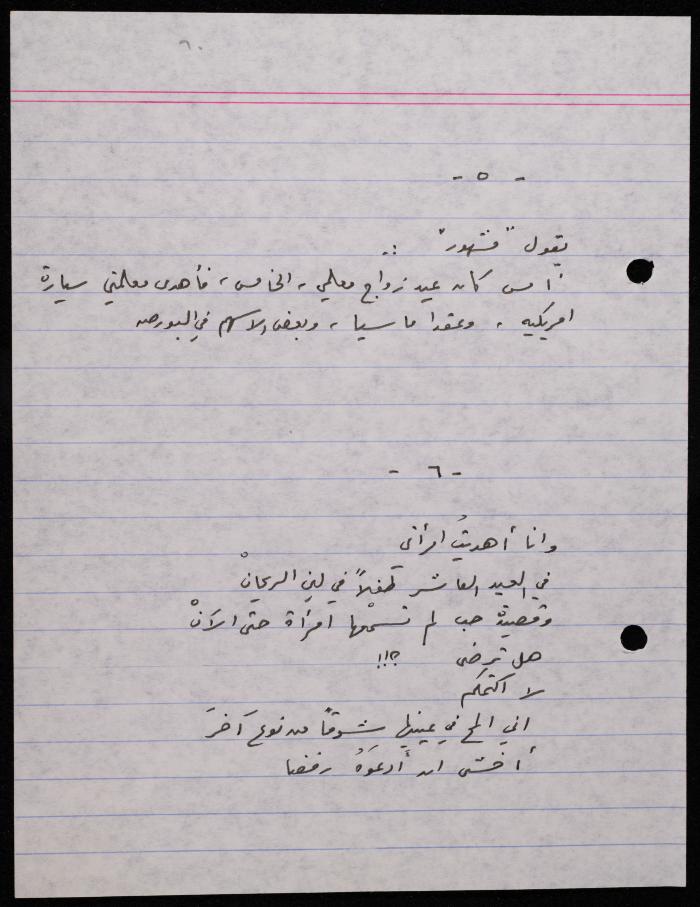 ٦٠
- ٥ -
يقول "منشهور" :.
أمس كان عيد زواج معلمي ، الخامس ، فأهدى معلمتي سيارة
امريكيه ، وعقدا ماسيا ، وبعض الاسهم في البورصه
- ٦ -
وانا أهديتُ امرأتي
في العيد العاشر طفلاً في لين الريحانْ
وقصيدة حب لم تسمعْها امرأة حتى الآنْ
هل ترضى ؟!!
لا اكتمكم
اني المح في عينيها شوقاً من نوع آخرَ
أخشى ان أدعوَهُ رفضا